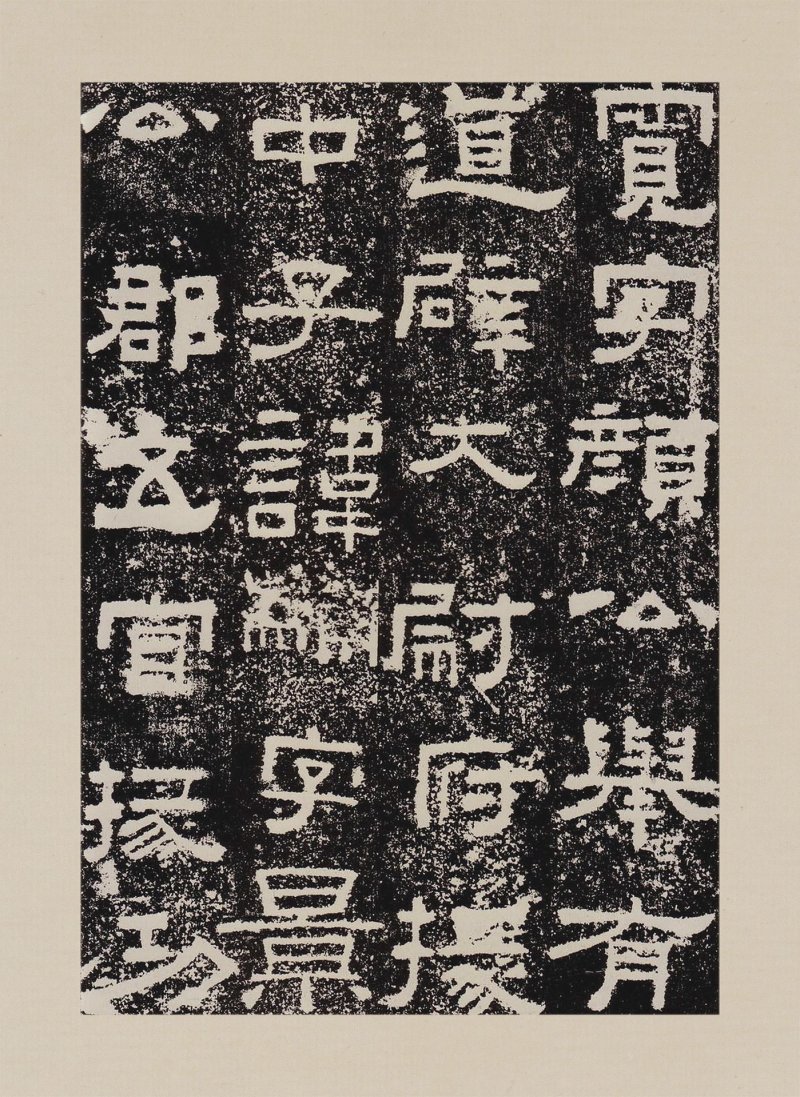 寬字顏公舉有
道辟大尉府掾
中子諱字景
公郡五官掾功